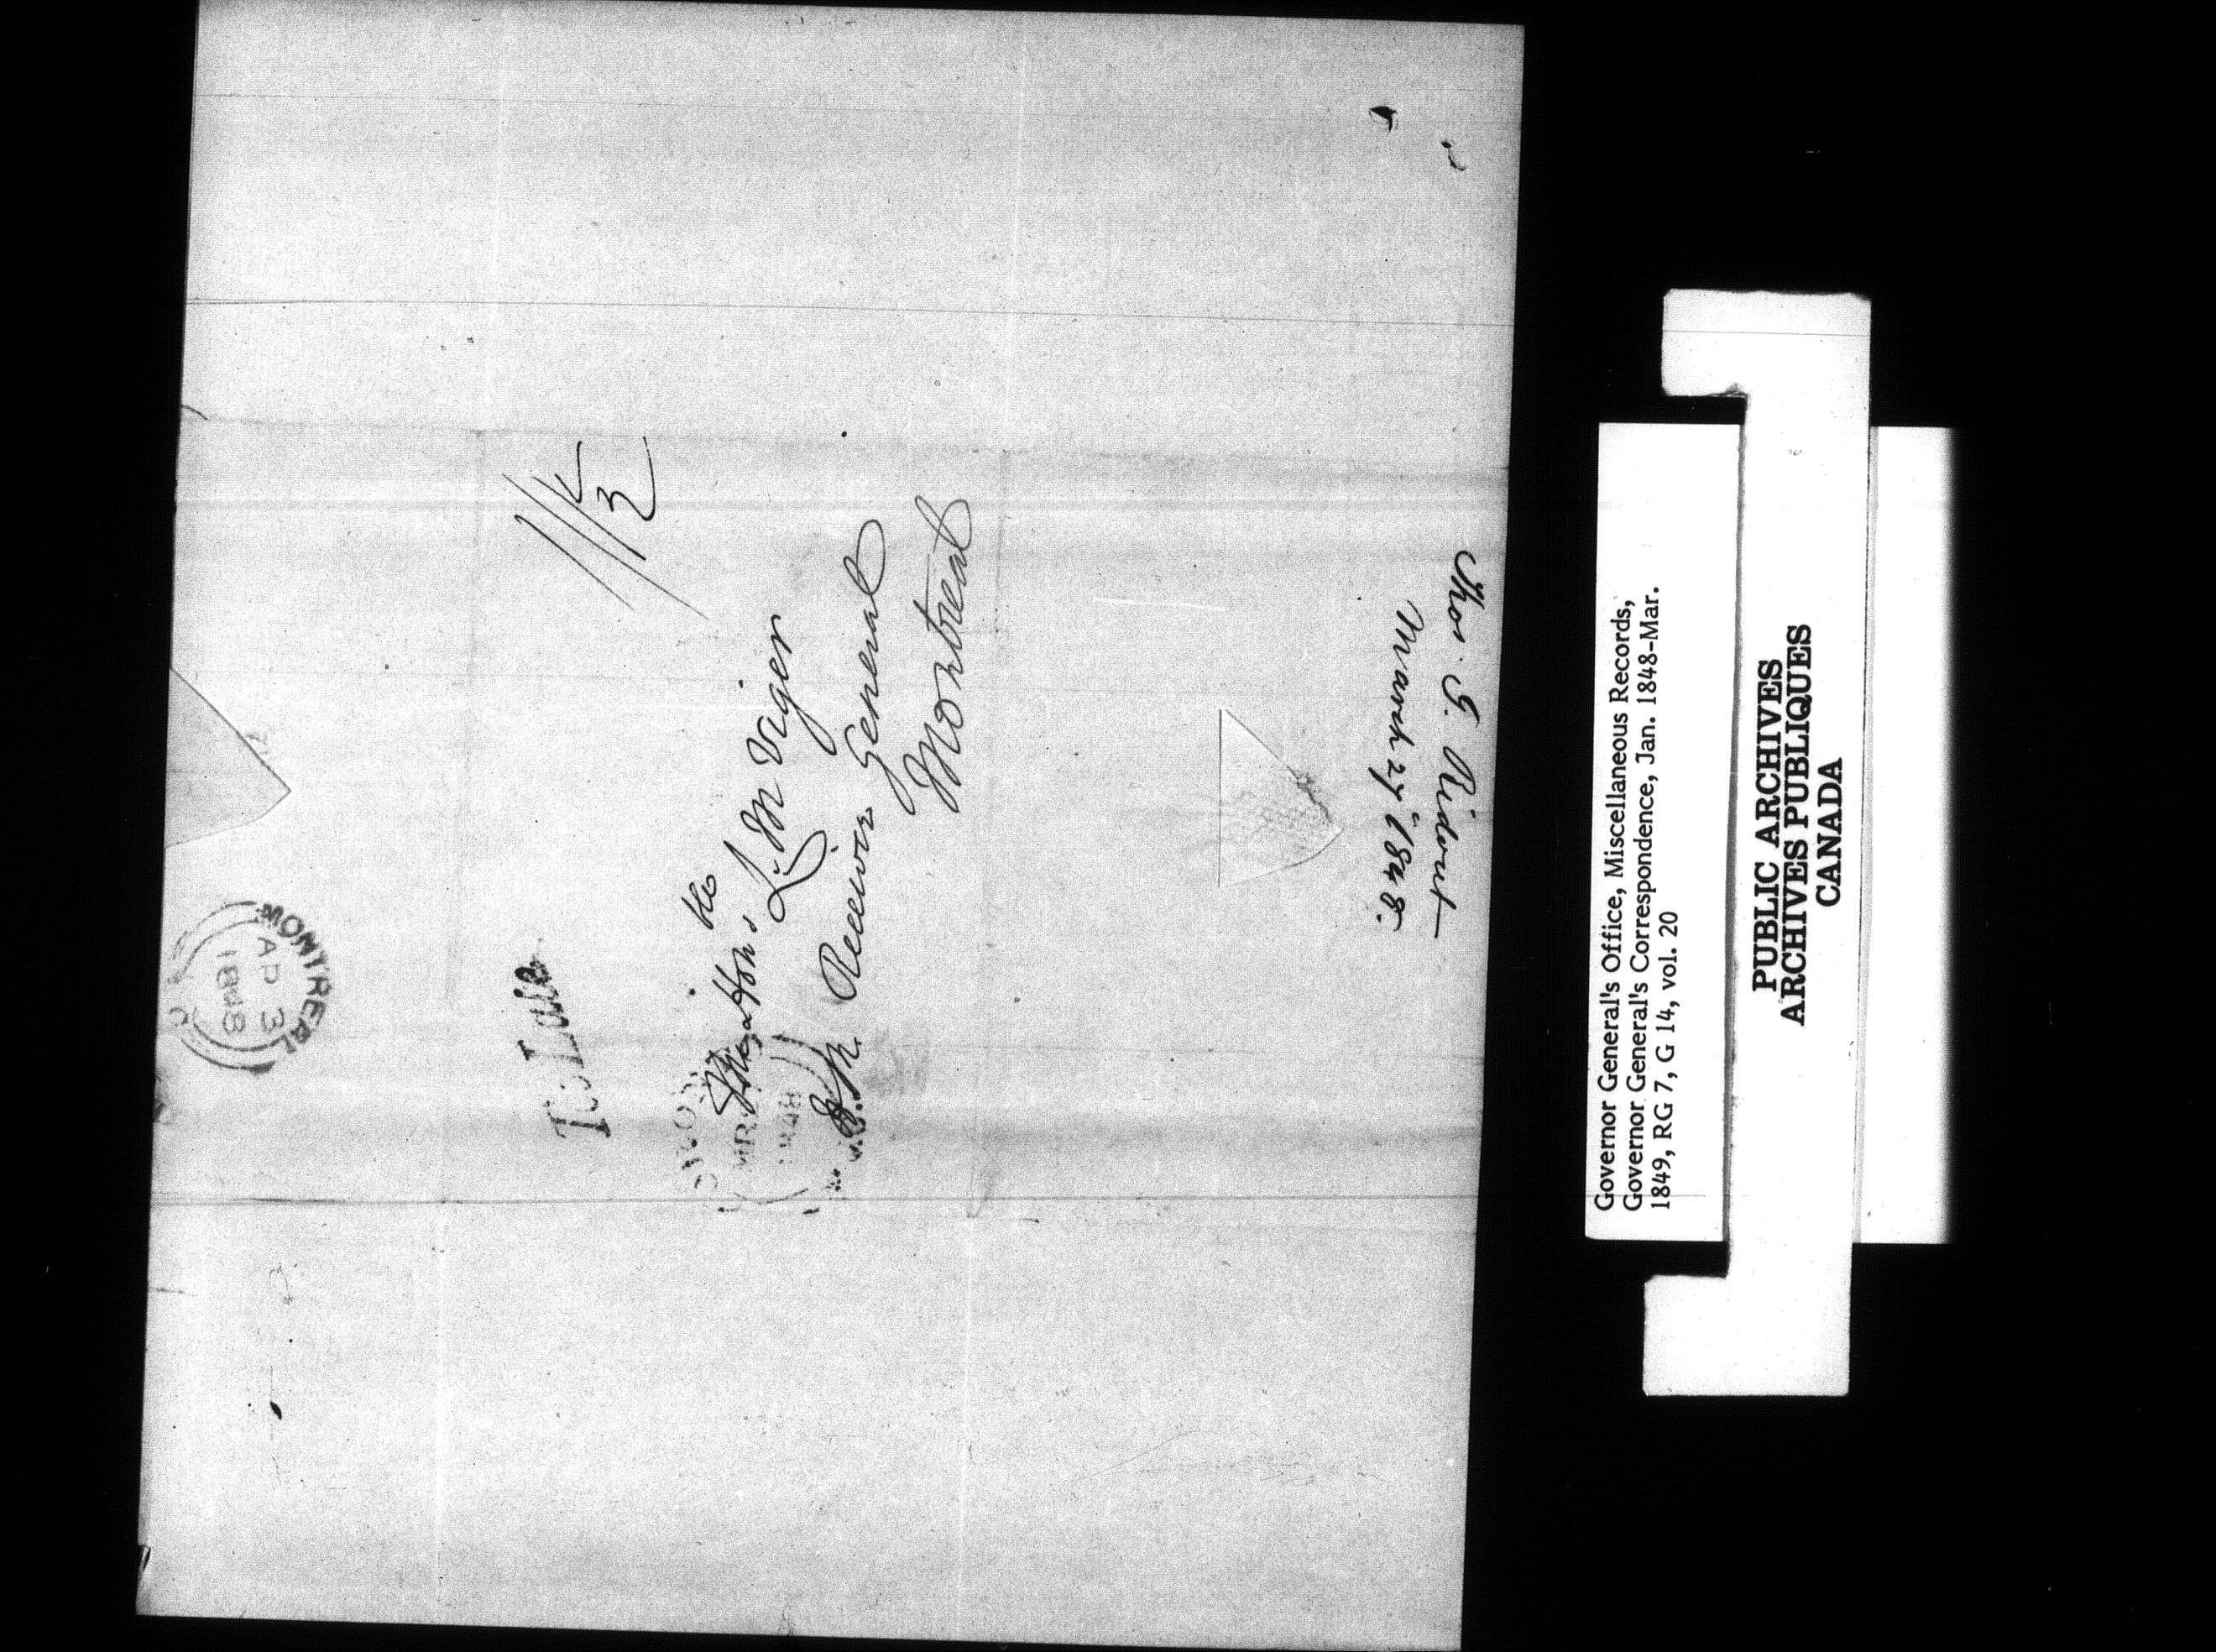 MONTREAL
AP 3
1848
Too Late
1/3
The Honble
L. M Viger
H. M. Receiver General
Montreal
Thos. G. Ridout
March 27th 1848.
Governor General's Office, Miscellaneous Records,
Governor General's Correspondence, Jan. 1848-Mar.
1849, RG 7, G 14, vol. 20
PUBLIC ARCHIVES
ARCHIVES PUBLIQUES
CANADA